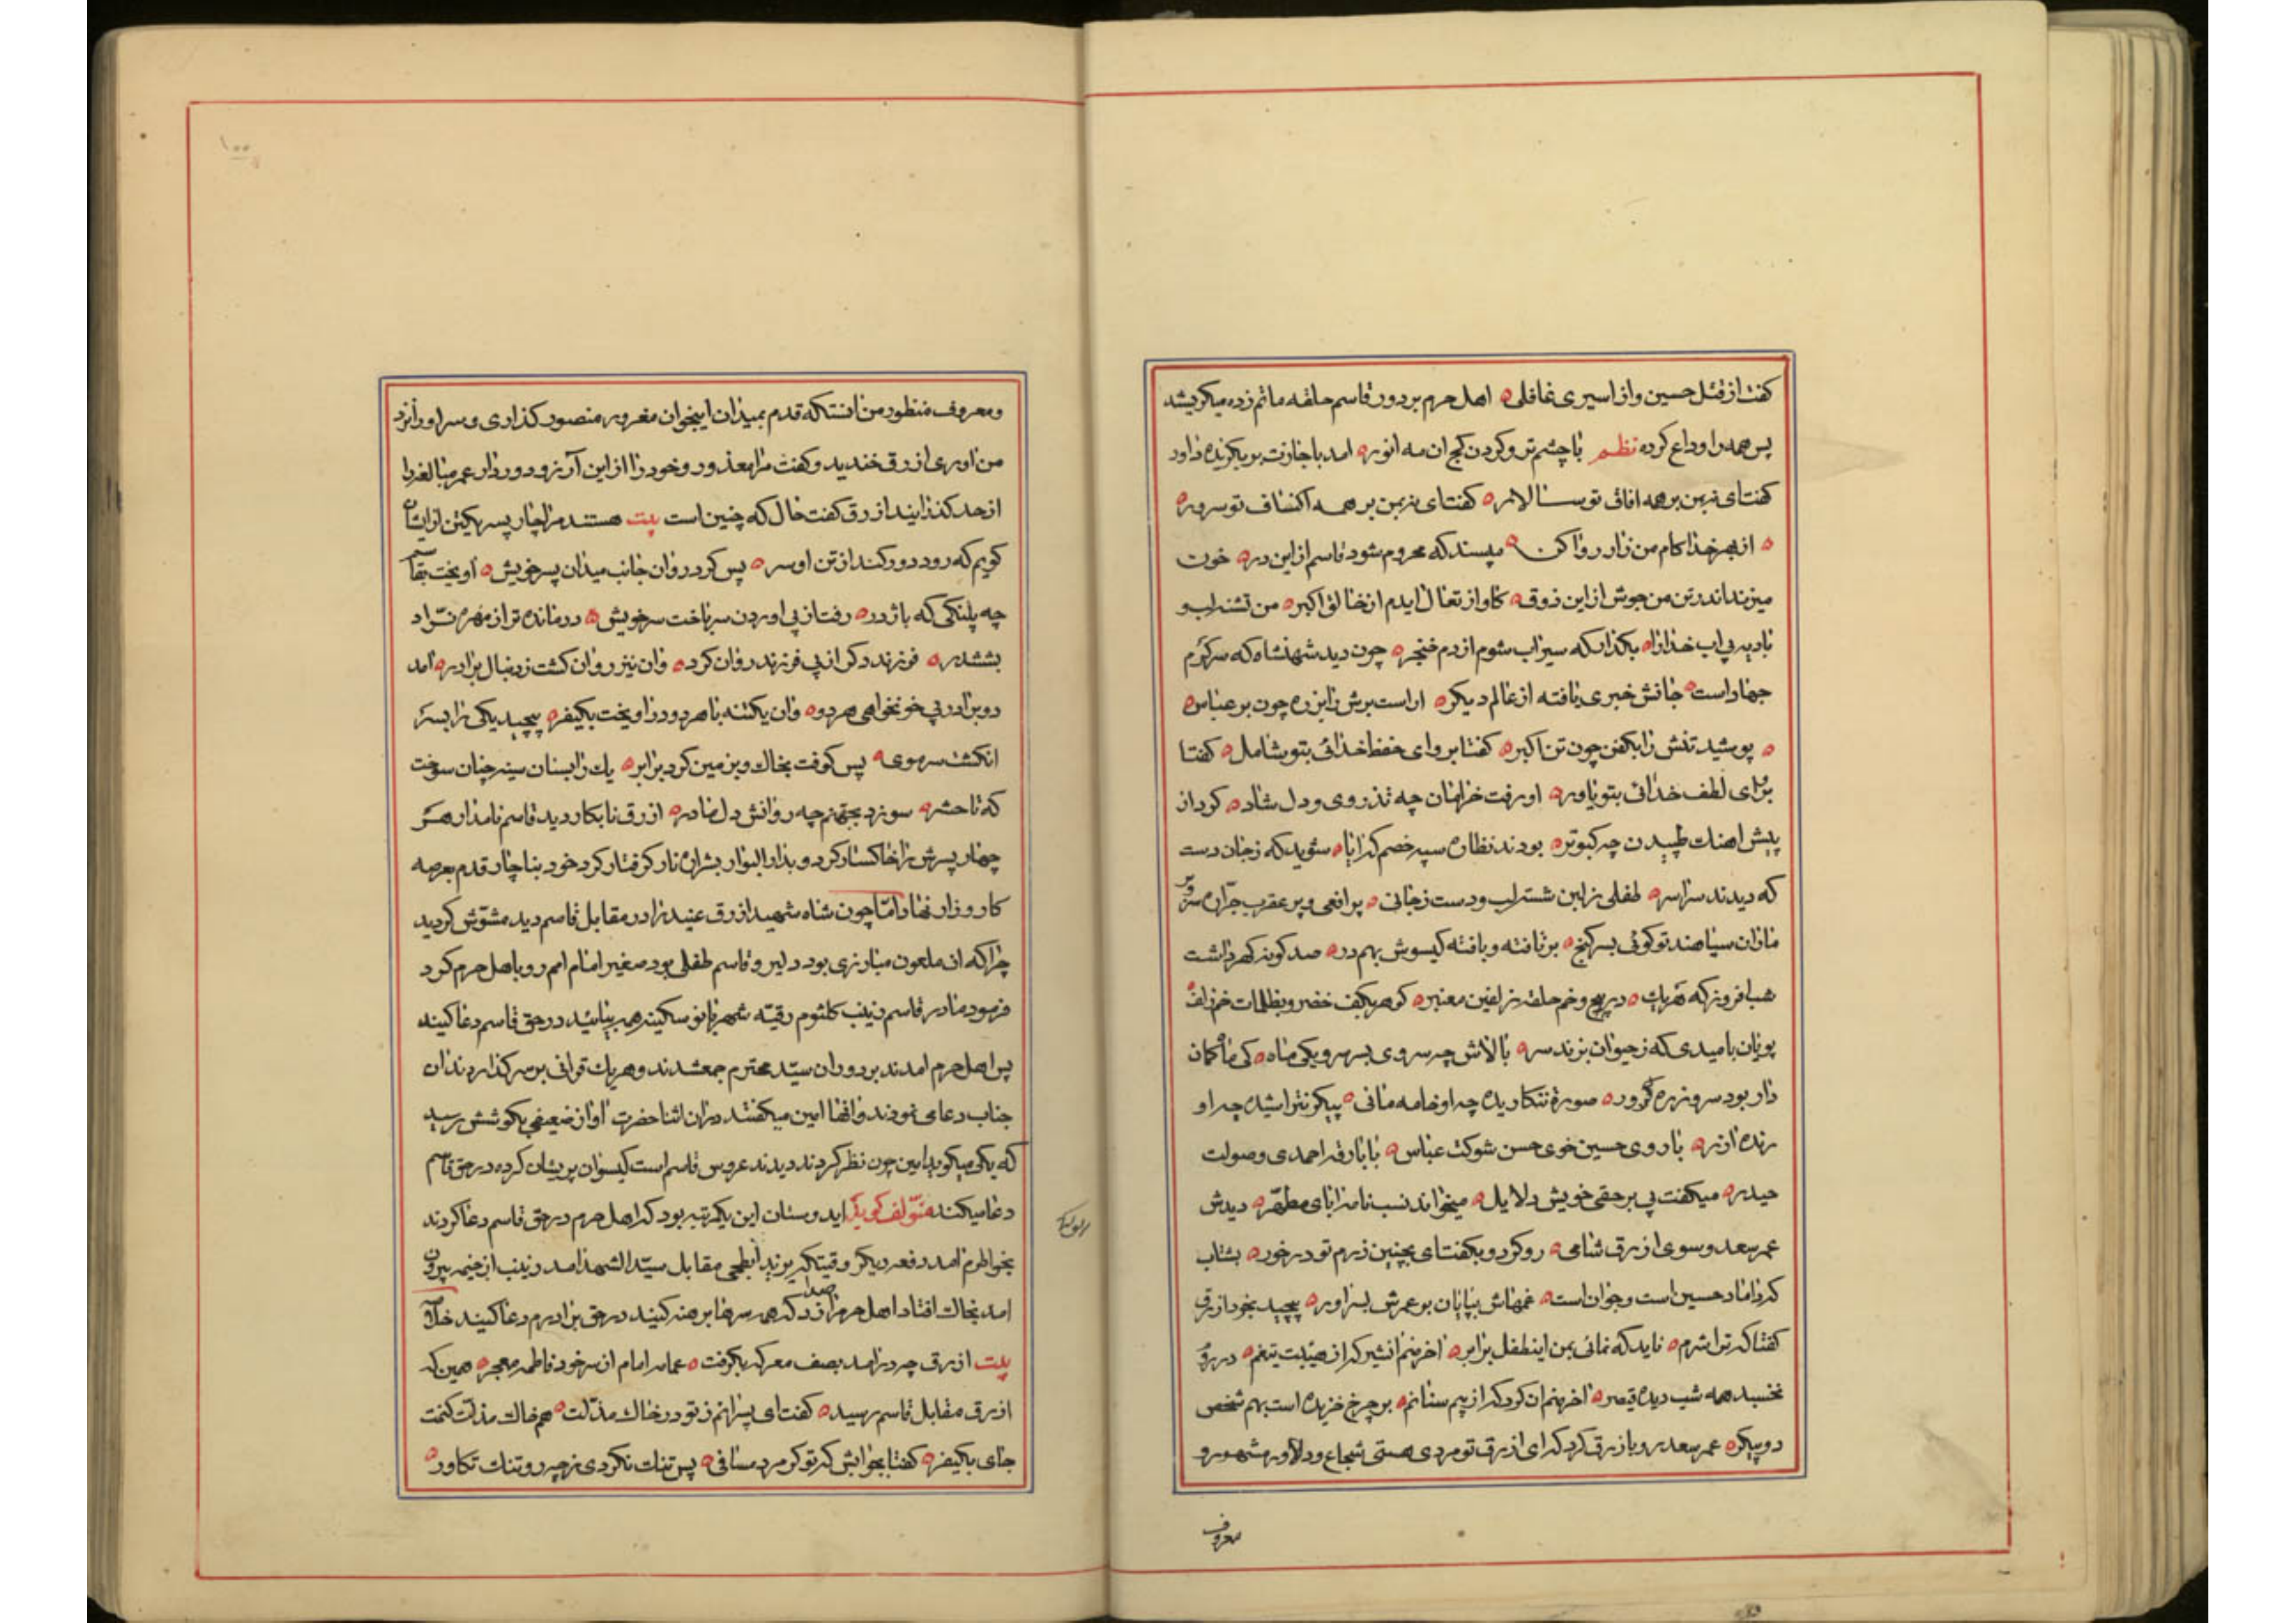 کفت از قتل حسین و از اسیری غافلی ه اهل حرم بر دور قاسم حلقه ماتم زده میکریستند
پس همه را وداع کرده نظم با چشم تر و کردن کج ان مه انور ه امد باجازت بر بکزیده داور
کفتا ی زمن بر همه افاق تو سالار ه کفت ای زمن بر همه اکناف تو سرور ه
ه از بهر خدا کام من زار روا کن ه مپسند که محروم شود قاسم از این در ه خون
میزند اندر تن من جوش از این ذوق ه کاواز تعال ایدم از خالق اکبر ه من تشنه لب و
بادیه بی اب خدا را ه بکذار که سیراب شوم از دم خنجر ه چون دید شهنشاه که سرکرم
جهاد است ه جانش خبری یافته از عالم دیکر ه اراست برش را بزره چون بر عباس ه
ه پوشید تنش را بکفن چون تن اکبر ه کفتا برو ای حفظ خدائی بتو شامل ه کفتا
برو ای لطف خدائی بتو یاور ه او رفت خرامان چه تذروی و دل شاد ه کرد از
پیش اهنک طپیدن چه کبوتر ه بودند نظاره سپه خصم کز اینا ه شوید که زجان دست
که دیدند سراسر ه طفلی ز لبن شسته لب و دست زجانی ه پر افعی و پر عقرب جراره سر و بر
ماران سیاهند تو کوئی بسر کنج ه بر تافته و بافته کیسوش بهم در ه صد کونه کهر داشت
شب افروز که هر یک ه در پیچ و خم حلقه زلفین معنبر ه کوهر بکف خضر و بظلمات خم زلف ه
پویان بامیدی که زحیوان بزند سر ه بالاش چه سروی بسر سرو یکی ماه ه کی ماه کمان
دار بود سرو زره ور ه صورة ننکاریده چه او خامه مانی ه پیکر نتراشیده چه او
رنده ازر ه با روی حسین خوی حسن شوکت عباس ه با بارقه احمدی و صولت
حیدر ه میکفت پی بر حقی خویش دلایل ه میخواند نسب نامه ابای مطهر ه دیدش
عمر سعد و سوی ازرق شامی ه رو کرد و بکفت ای بچنین رزم تو در خور ه بشتاب
که داماد حسین است و جوان است ه غمهاش بپایان بر و عمرش بسر اور ه پیچید بخود ازرق
کفتا که ترا شرم ه ناید که نمائی بمن اینطفل برابر ه اخر نه من انشیر که از هیبت تیغم ه در روم
نخسبد همه شب دیده قیصر ه اخر نه من ان کرد که از بیم سنانم ه بر چرخ خزیده است بهم شخص
دو پیکر ه عمر سعد رو بازرق کرد که ای ازرق تو مردی هستی شجاع و دلاور مشهور و
معروف
و معروف منظور من انستکه قدم بمیدان اینجوان مغرور منصور کذاری و سر او را نزد
من اوری ازرق خندید و کفت مرا معذور و خود را از این آرزو دور دار عمر مبالغه را
از حد کذرانید ازرق کفت حال که چنین است بیت هستند مرا چار پسر یکتن از ایشان
کویم که رود دور کند از تن او سر ه پس کرد روان جانب میدان پسر خویش ه اویخت بقاسم
چه پلنکی که باژدر ه رفت از پی اوردن سر باخت سر خویش ه درمانده تر از مهره نراد
بششدر ه فرزند دکر از پی فرزند روان کرد ه وان نیز روان کشت ز دنبال برادر ه امد
دو برادر پی خونخواهی هر دو ه وان یکتنه با هر دو در اویخت بکیفر ه پیچید یکی را بسر
انکشت سر موی ه پس کوفت بخاک و بزمین کرد برابر ه یک را بسنان سینه چنان سوخت
که تا حشر ه سوزد بجهنم چه روانش دل مادر ه ازرق نابکار دید قاسم نامدار هر
چهار پسرش را خاکسار کرد و بدار البوار بشراره نار کرفتار کرد خود بناچار قدم بعرصه
کارزار نهاد امّا چون شاه شهید ازرق عنید را در مقابل قاسم دید مشوّش کردید
چرا که ان ملعون مبارزی بود دلیر و قاسم طفلی بود صغیر امام امم رو باهل حرم کرد
فرمود مادر قاسم زینب کلثوم رقیّه شهربانو سکینه همه بیائید در حق قاسم دعا کنید
پس اهل حرم امدند بر دور ان سیّد محترم جمع شدند و هر یک قرانی بر سر کذاردند ان
جناب دعا می نمودند و انها امین میکفتند در ان اثنا حضرت اواز ضعیفی بکوشش رسید
که یکی میکوید امین چون نظر کردند دیدند عروس قاسم است کیسوان پریشان کرده در حق قاسم
دعا میکند مؤلف کوید ایدوستان این یکمرتبه بود که اهل حرم در حق قاسم دعا کردند
بخواطرم امد دفعه دیکر وقتیکه یزید ابطحی مقابل سیّد الشهدا امد زینب از خیمه بیرون
امد بخاک افتاد اهل حرم را صدا زد که همه سرها برهنه کنید در حق برادرم دعا کنید خلاصه
بیت ازرق چه در امد بصف معرکه بکرفت ه عمامه امام از سر خود فاطمه معجر ه همین که
ازرق مقابل قاسم رسید ه کفت ای پسرانم ز تو در خاک مذلت ه هم خاک مذلت کنمت
جای بکیفر ه کفتا بجوابش که تو کر مرد مصافی ه پس تنک نکردی ز چه رو تنک تکاور ه